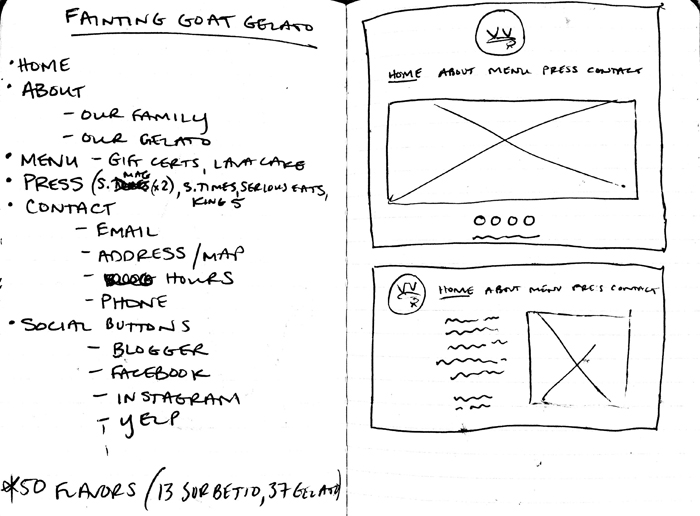 FAINTING GOAT GELATO
• HOME
• ABOUT
– OUR FAMILY
– OUR GELATO
• MENU – GIFT CERTS, LAVA CAKE
• PRESS (S. MAG (x2), S. TIMES, SERIOUS EATS,
KING 5
• CONTACT
– EMAIL
– ADDRESS/MAP
– HOURS
– PHONE
• SOCIAL BUTTONS
– BLOGGER
– FACEBOOK
– INSTAGRAM
– YELP
* 50 FLAVORS (13 SORBETTO, 37 GELATO)
HOME ABOUT MENU PRESS CONTACT
HOME ABOUT MENU PRESS CONTACT